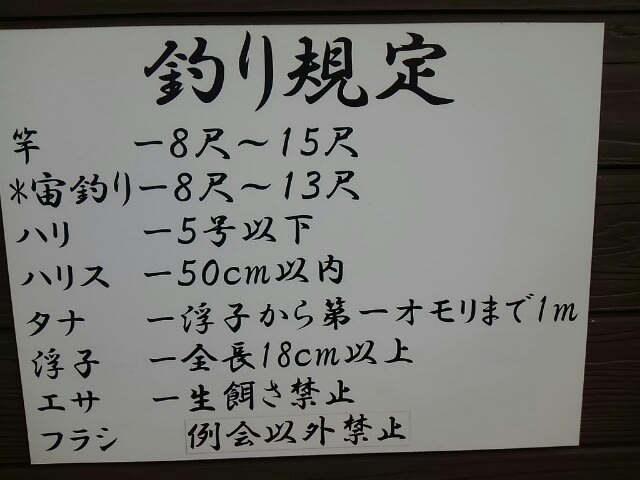 釣り規定
竿 ー8尺～15尺
*宙釣りー8尺～13尺
ハリ ー5号以下
ハリス ー50cm以内
タナ ー浮子から第一オモリまで1m
浮子 ー全長18cm以上
エサ ー生餌さ禁止
フラシ 例会以外禁止